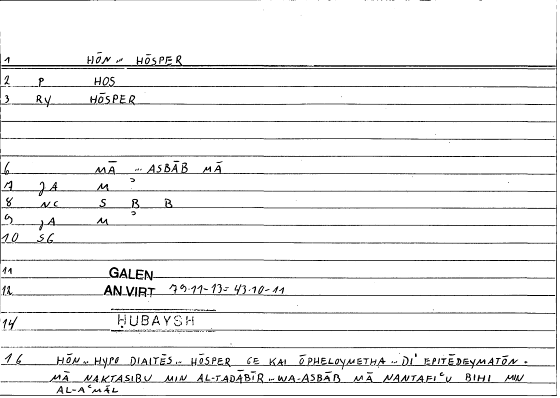 1 HŌN .. HŌSPER
2 P HOS
3 RY HŌSPER
6 MĀ .. ASBĀB MĀ
7 JA M ʾ
8 NC S B B
9 JA M ʾ
10 SG
11 GALEN
12 AN.VIRT 79.11-13 = 43.10-11
14 ḤUBAYSH
16 HŌN .. HYPO DIAITĒS .. HŌSPER GE KAI ŌPHELOYMETHA .. DI' EPITĒDEYMATŌN .
MĀ NAKTASIBU MIN AL-TADĀBĪR .. WA-ASBĀB MĀ NANTAFIʿU BIHI MIN
AL-AʿMĀL